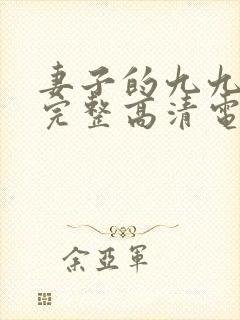 妻子的九九
完整高清電
余亞軍